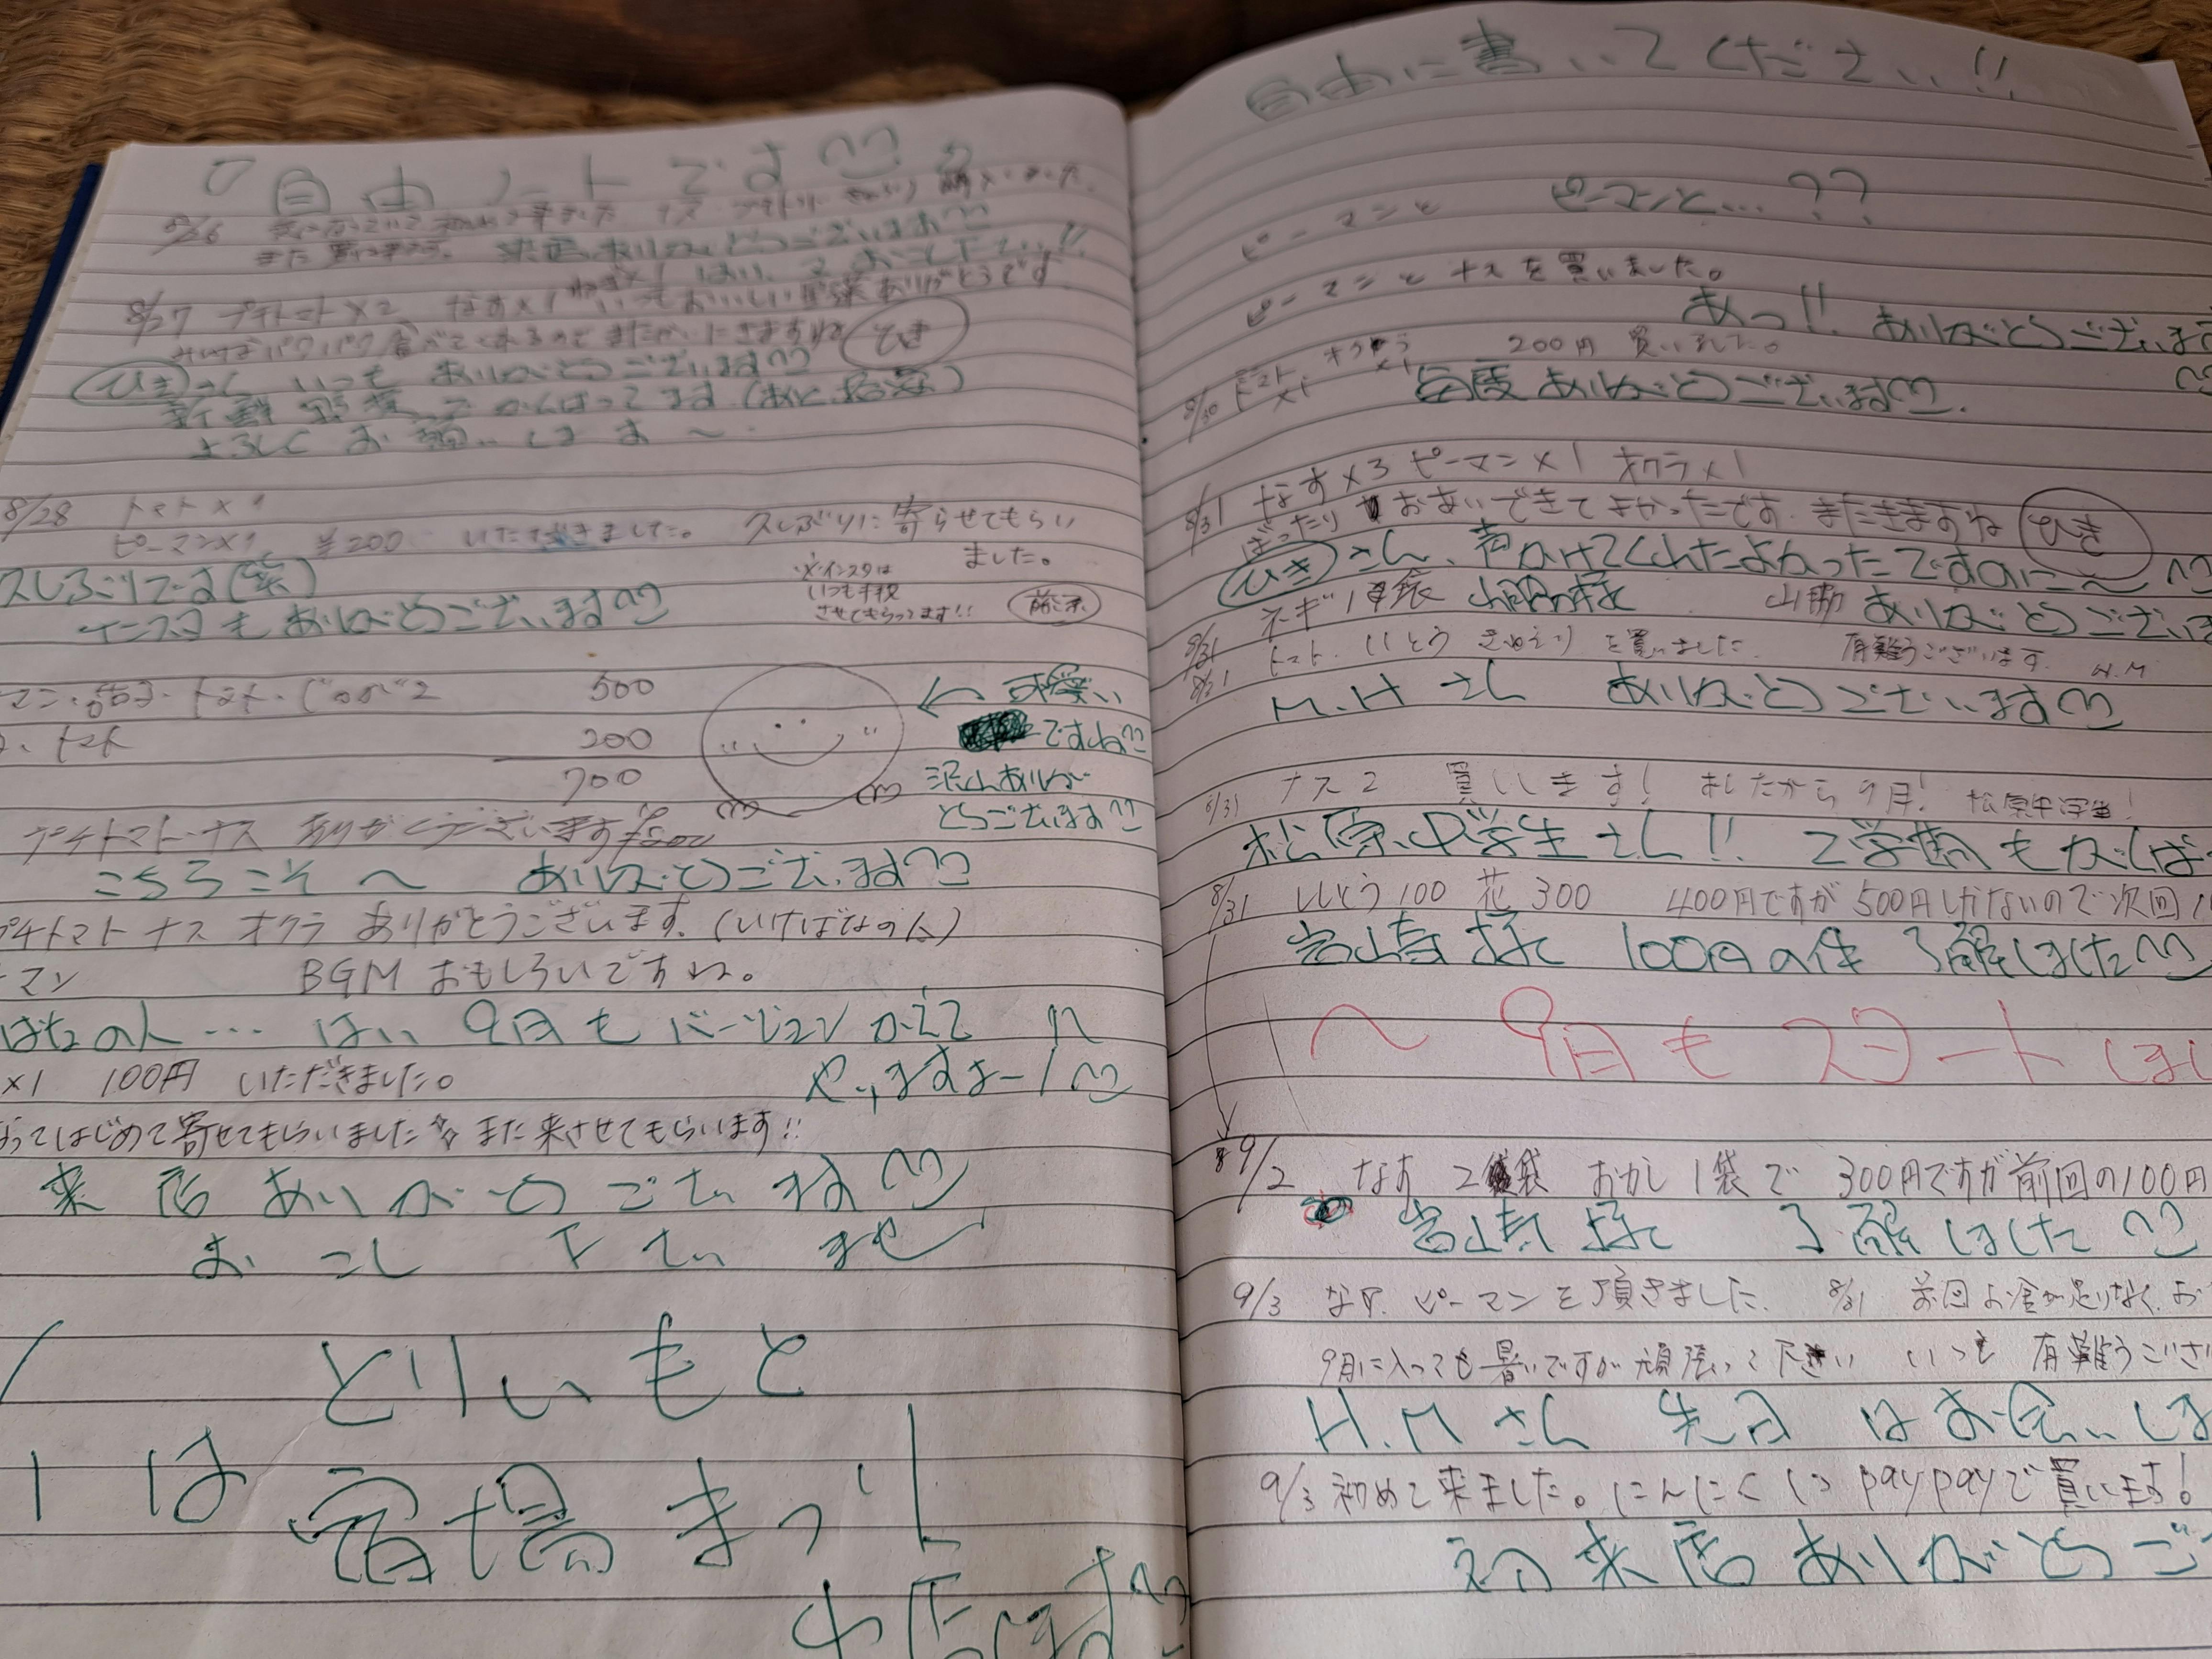 自由ノートです
8/26 気になっていて初めて来ました ナス プチトマト きゅうり 購入しました。
また買いに来ます。 来店ありがとうございます
はい、またおこし下さい!!
8/27 プチトマト×2 なす×1 ねぎ×1 いつもおいしい野菜ありがとうです
パクパク食べてくれるのでまたかいにきますね ひき
ひきさん いつも ありがとうございます
新鮮野菜でがんばってます
よろしくお願いしま〜
8/28 トマト×1
ピーマン×1 ¥200 いただきました。 久しぶりに寄らせてもらい
ました。
※インスタは
いつも拝見
させてもらってます!!
久しぶりです(笑)
インスタもありがとうございます
マン・茄子・トマト・じゃが2 500
トマト 200
700
← 可愛い
ですね
沢山ありが
とうございます
プチトマト・ナス ありがとうございます
こちらこそ〜 ありがとうございます
プチトマト ナス オクラ ありがとうございます。(いけばなの人)
ーマン BGM おもしろいですね。
ばなの人… はい 9月もバージョンかえて
やりますよー!
×1 100円 いただきました。
なってはじめて寄せてもらいました☆また来させてもらいます!!
来店ありがとうございます
おこし下さいませ
とりいもと
は 宿場まつり
出店します
自由に書いてください!!
ピーマンと ピーマンと…??
ピーマンとナスを買いました。
あっ!! ありがとうございま
8/30 トマト×1 オクラ×1 200円 買いました。
毎度ありがとうございます。
8/31 なす×3 ピーマン×1 オクラ×1
ばったりお会いできてよかったです。またきますね ひき
ひきさん、声かけてくれたよかったですのに〜
8/31 ネギ1袋 山脇様 山脇 ありがとうござい
8/31 トマト、ししとう きゅうりを買いました 有難うございます。 H.M
M.Hさん ありがとうございます
8/31 ナス2 買いします! あしたから9月! 松原中学生!
松原中学生さん!! 2学期もがんば
8/31 ししとう100 花300 400円ですが500円しかないので次回1
宮崎様 100円の件 了解しました
〜9月もスタートしまし
9/2 なす 2袋 おかし1袋で 300円ですが前回の100円
宮崎様 了解しました
9/3 なす、ピーマンを頂きました。 8/31 前回お金が足りなく、お
9月に入っても暑いですが頑張って下さい いつも 有難うござ
H.Mさん 先日はお会いしま
9/3 初めて来ました。にんにく1つpaypayで買います!
初来店ありがとうご